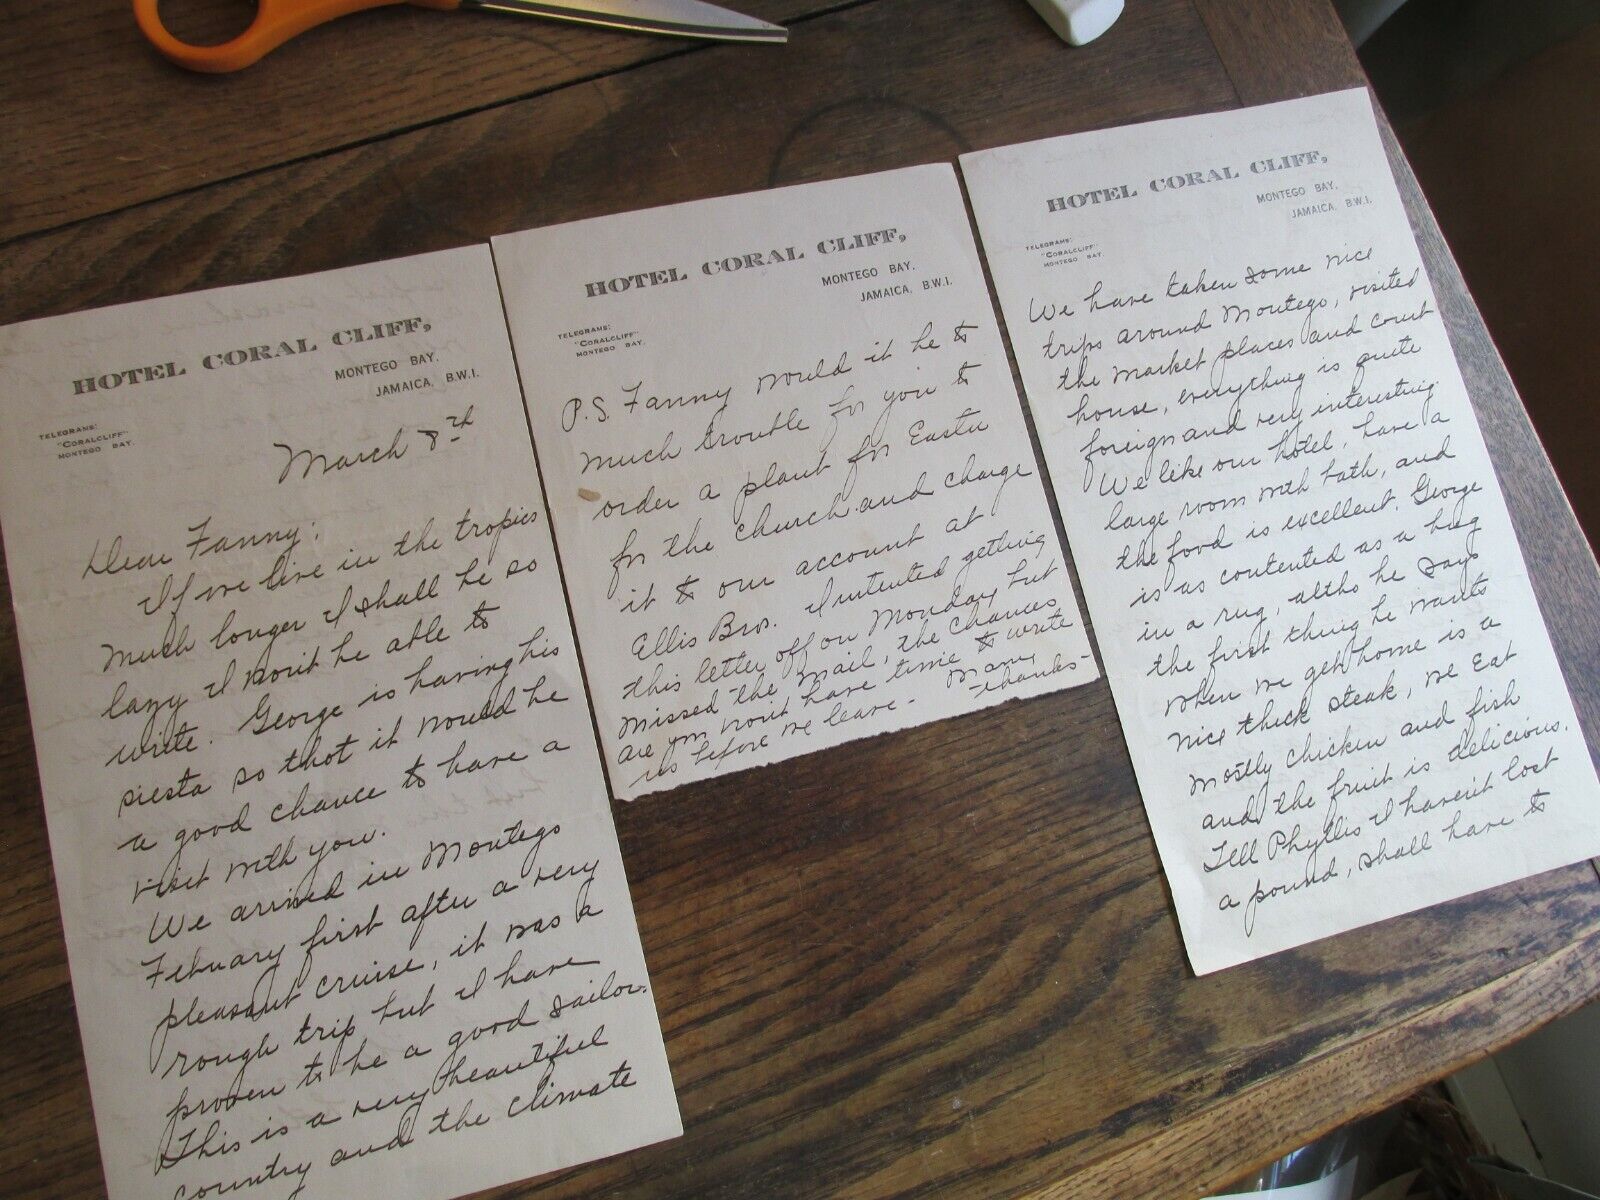 HOTEL CORAL CLIFF,
MONTEGO BAY,
JAMAICA, B.W.I.
TELEGRAMS:
"CORALCLIFF"
MONTEGO BAY.
March 8th
Dear Fanny:
If we live in the tropics
much longer I shall be so
lazy I won't be able to
write. George is having his
siesta so that it would be
a good chance to have a
visit with you.
We arrived in Montego
February first after a very
pleasant cruise, it was a
rough trip but I have
proven to be a good sailor.
This is a very beautiful
country and the climate
HOTEL CORAL CLIFF,
MONTEGO BAY,
JAMAICA, B.W.I.
TELEGRAMS:
"CORALCLIFF"
MONTEGO BAY.
P.S. Fanny would it be to
much trouble for you to
order a plant for Easter
for the church and charge
it to our account at
Ellis Bros. I intented getting
this letter off on Monday but
missed the mail, the chances
are you won't have time to write
us before we leave - Many
thanks -
HOTEL CORAL CLIFF,
MONTEGO BAY,
JAMAICA, B.W.I.
TELEGRAMS:
"CORALCLIFF"
MONTEGO BAY.
We have taken some nice
trips around Montego, visited
the market places and court
house, everything is quite
foreign and very interesting.
We like our hotel, have a
large room with bath, and
the food is excellent. George
is as contented as a bug
in a rug, altho he says
the first thing he wants
when we get home is a
nice thick steak, we eat
mostly chicken and fish
and the fruit is delicious.
Tell Phyllis I haven't lost
a pound, shall have to